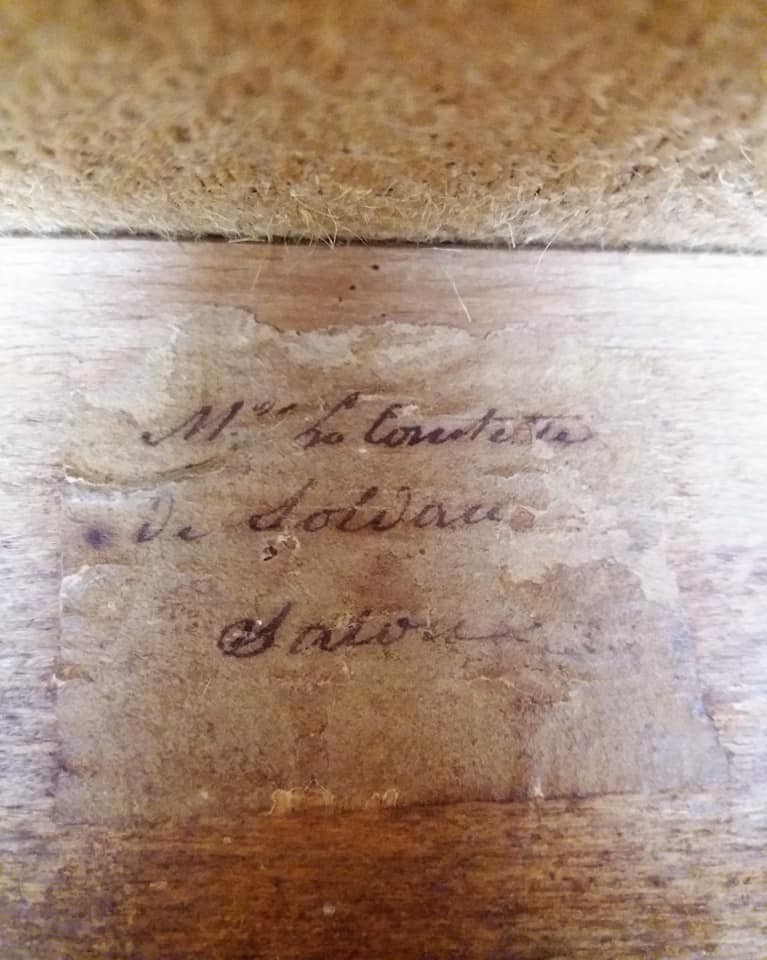 M.me La Comtesse
de Soidan
Salon